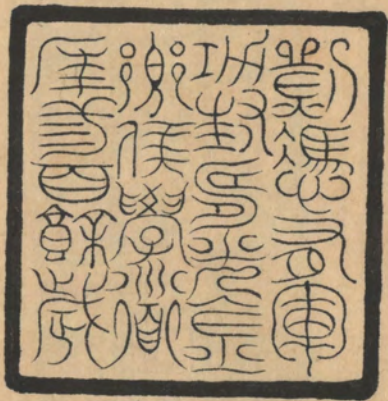 劉憑有軍
功封壽光金
鄉侯學道
年三百餘歲